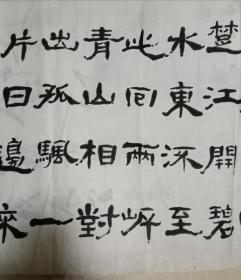 楚江開碧
水東流至
此回兩岸
青山相對
出孤颿一
片日邊來